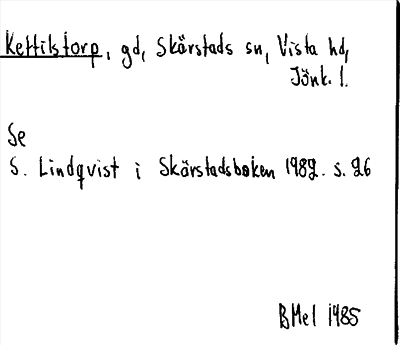 Kettilstorp, gd, Skärstads sn, Vista hd,
Jönk. l.
Se
S. Lindqvist i Skärstadsboken 1982. s. 26
BMel 1985